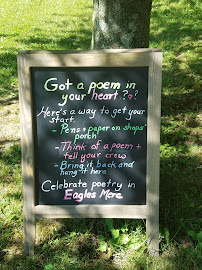 Got a poem in
your heart ?♡?
Here's a way to get your
start.
- Pens + paper on shops'
porch
- Think of a poem +
tell your crew
- Bring it back and
hang it here
Celebrate poetry in
Eagles Mere